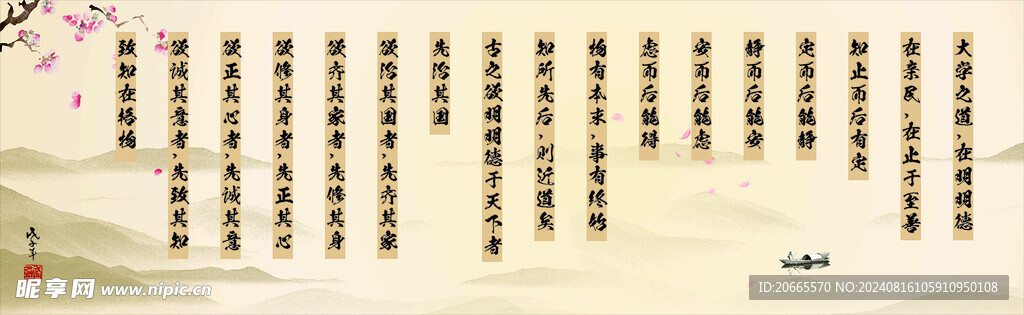 大学之道,在明明德
在亲民,在止于至善
知止而后有定
定而后能静
静而后能安
安而后能虑
虑而后能得
物有本末,事有终始
知所先后,则近道矣
古之欲明明德于天下者
先治其国
欲治其国者,先齐其家
欲齐其家者,先修其身
欲修其身者,先正其心
欲正其心者,先诚其意
欲诚其意者,先致其知
致知在格物
戊子年
昵享网 www.nipic.cn
ID:20665570 NO:20240816105910950108